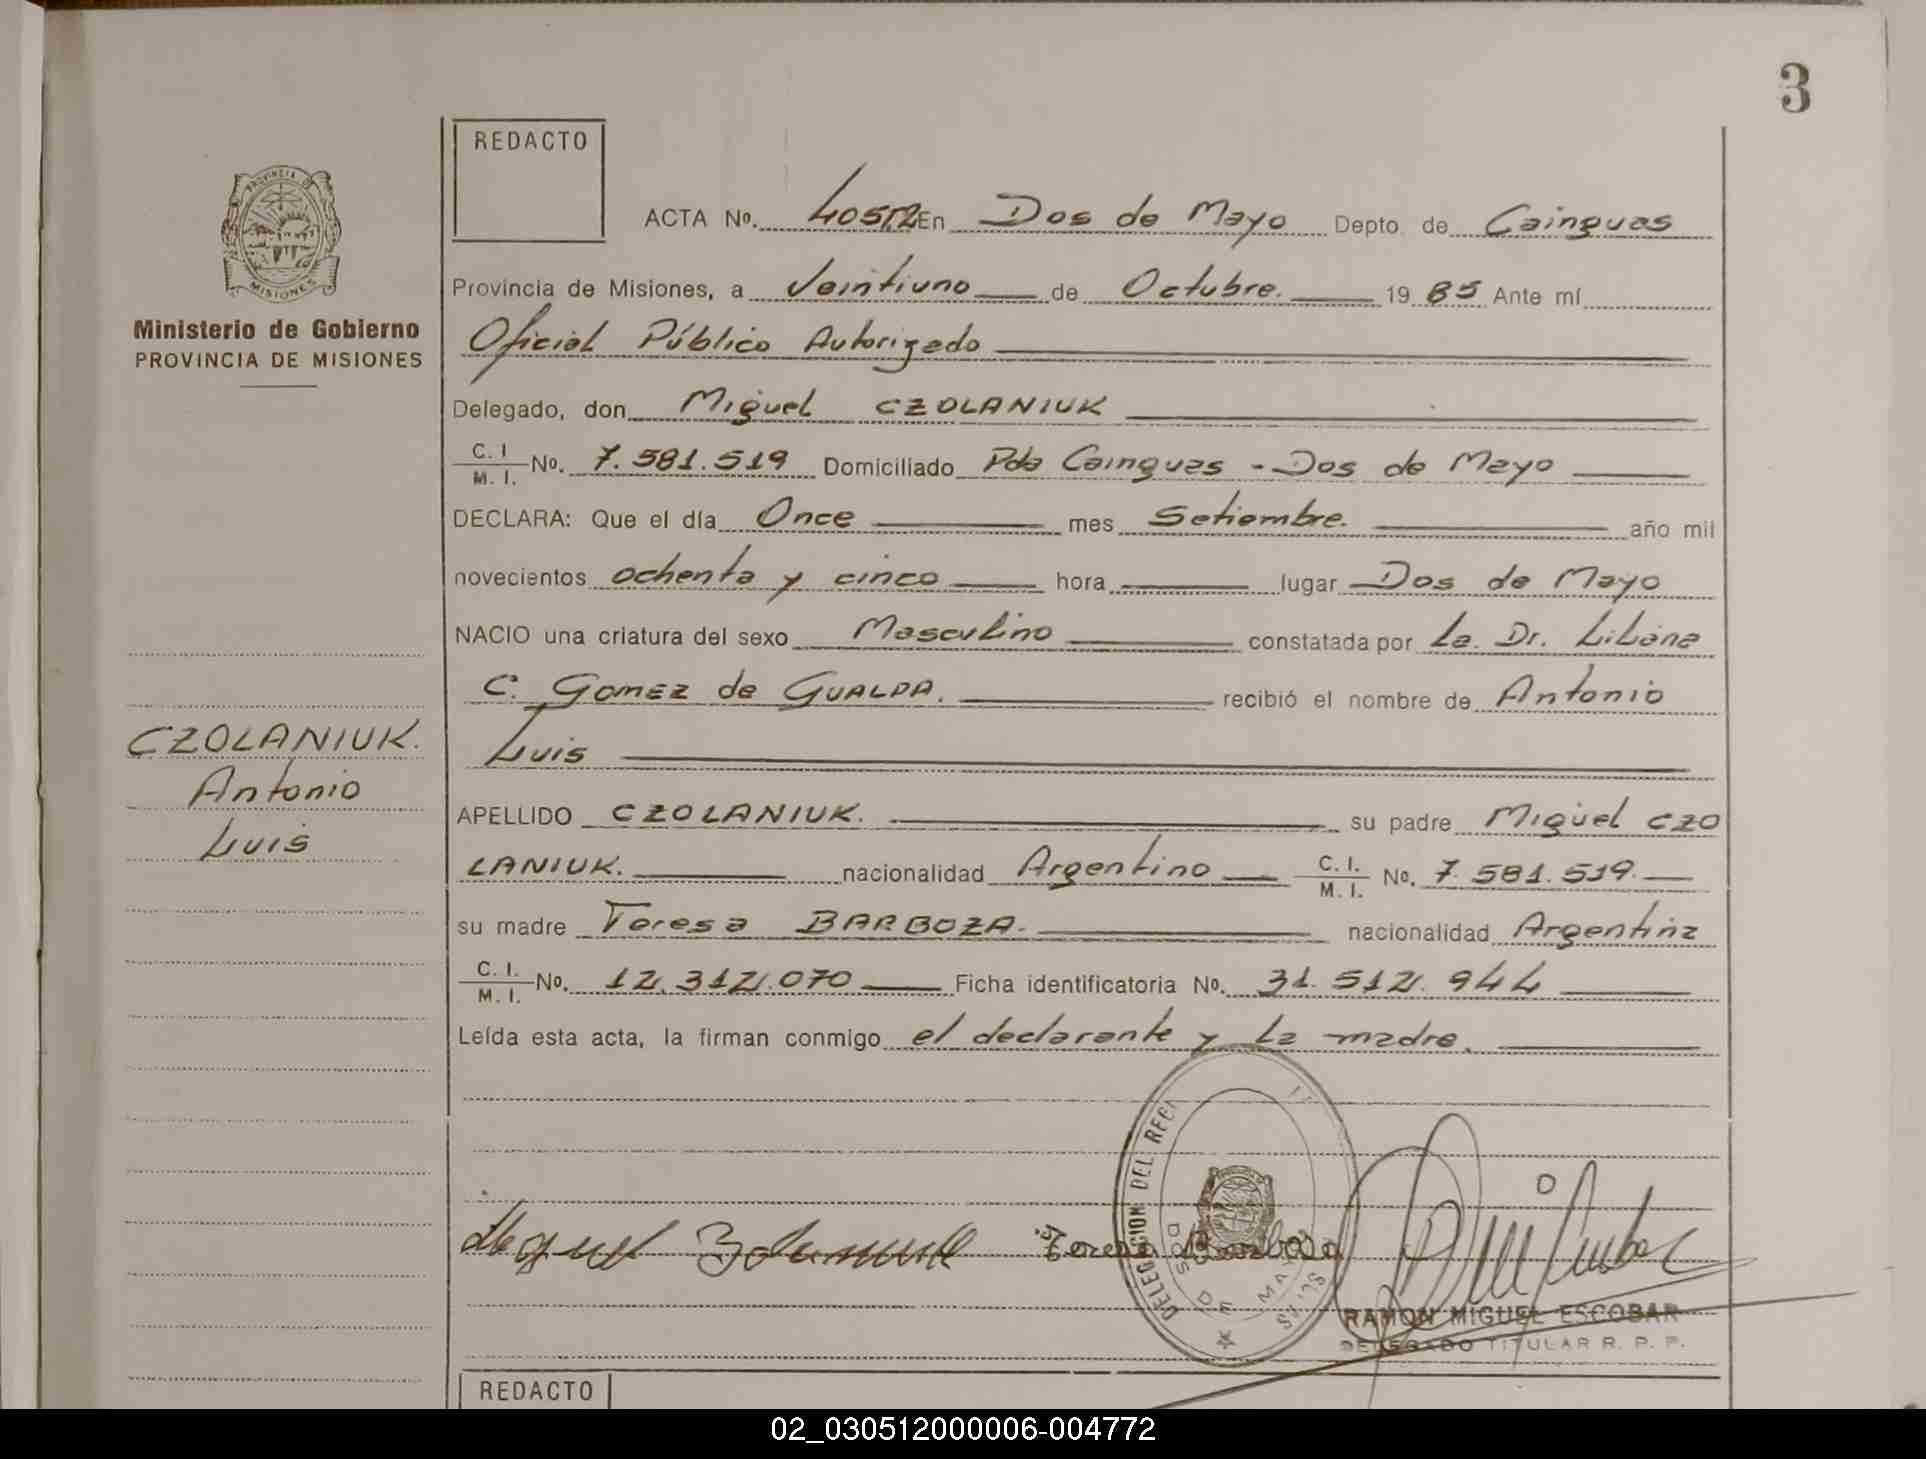 3
REDACTO
PROVINCIA DE
MISIONES
Ministerio de Gobierno
PROVINCIA DE MISIONES
ACTA Nº. En Dos de Mayo Depto. de Cainguas
Provincia de Misiones, a Veintiuno de Octubre. 19 85 Ante mí
Oficial Público Autorizado
Delegado, don Miguel CZOLANIUK
C. I. M. I. Nº. 7.581.519 Domiciliado Pda Cainguas - Dos de Mayo
DECLARA: Que el día Once mes Setiembre. año mil
novecientos ochenta y cinco hora lugar Dos de Mayo
NACIO una criatura del sexo Masculino constatada por La. Dr. Liliana
C. GOMEZ de GUALDA. recibió el nombre de Antonio
Luis
CZOLANIUK.
Antonio
Luis
APELLIDO CZOLANIUK. su padre Miguel CZO
LANIUK. nacionalidad Argentino C. I. M. I. Nº. 7.581.519.
su madre Teresa BARBOZA. nacionalidad Argentina
C. I. M. I. Nº. 12.312.070 Ficha identificatoria Nº. 31.512.944
Leída esta acta, la firman conmigo el declarante y la madre.
DELEGACION DEL REGI
DOS DE MAYO
Teresa Barboza
RAMON MIGUEL ESCOBAR
DELEGADO TITULAR R. P. P.
REDACTO
02_030512000006-004772